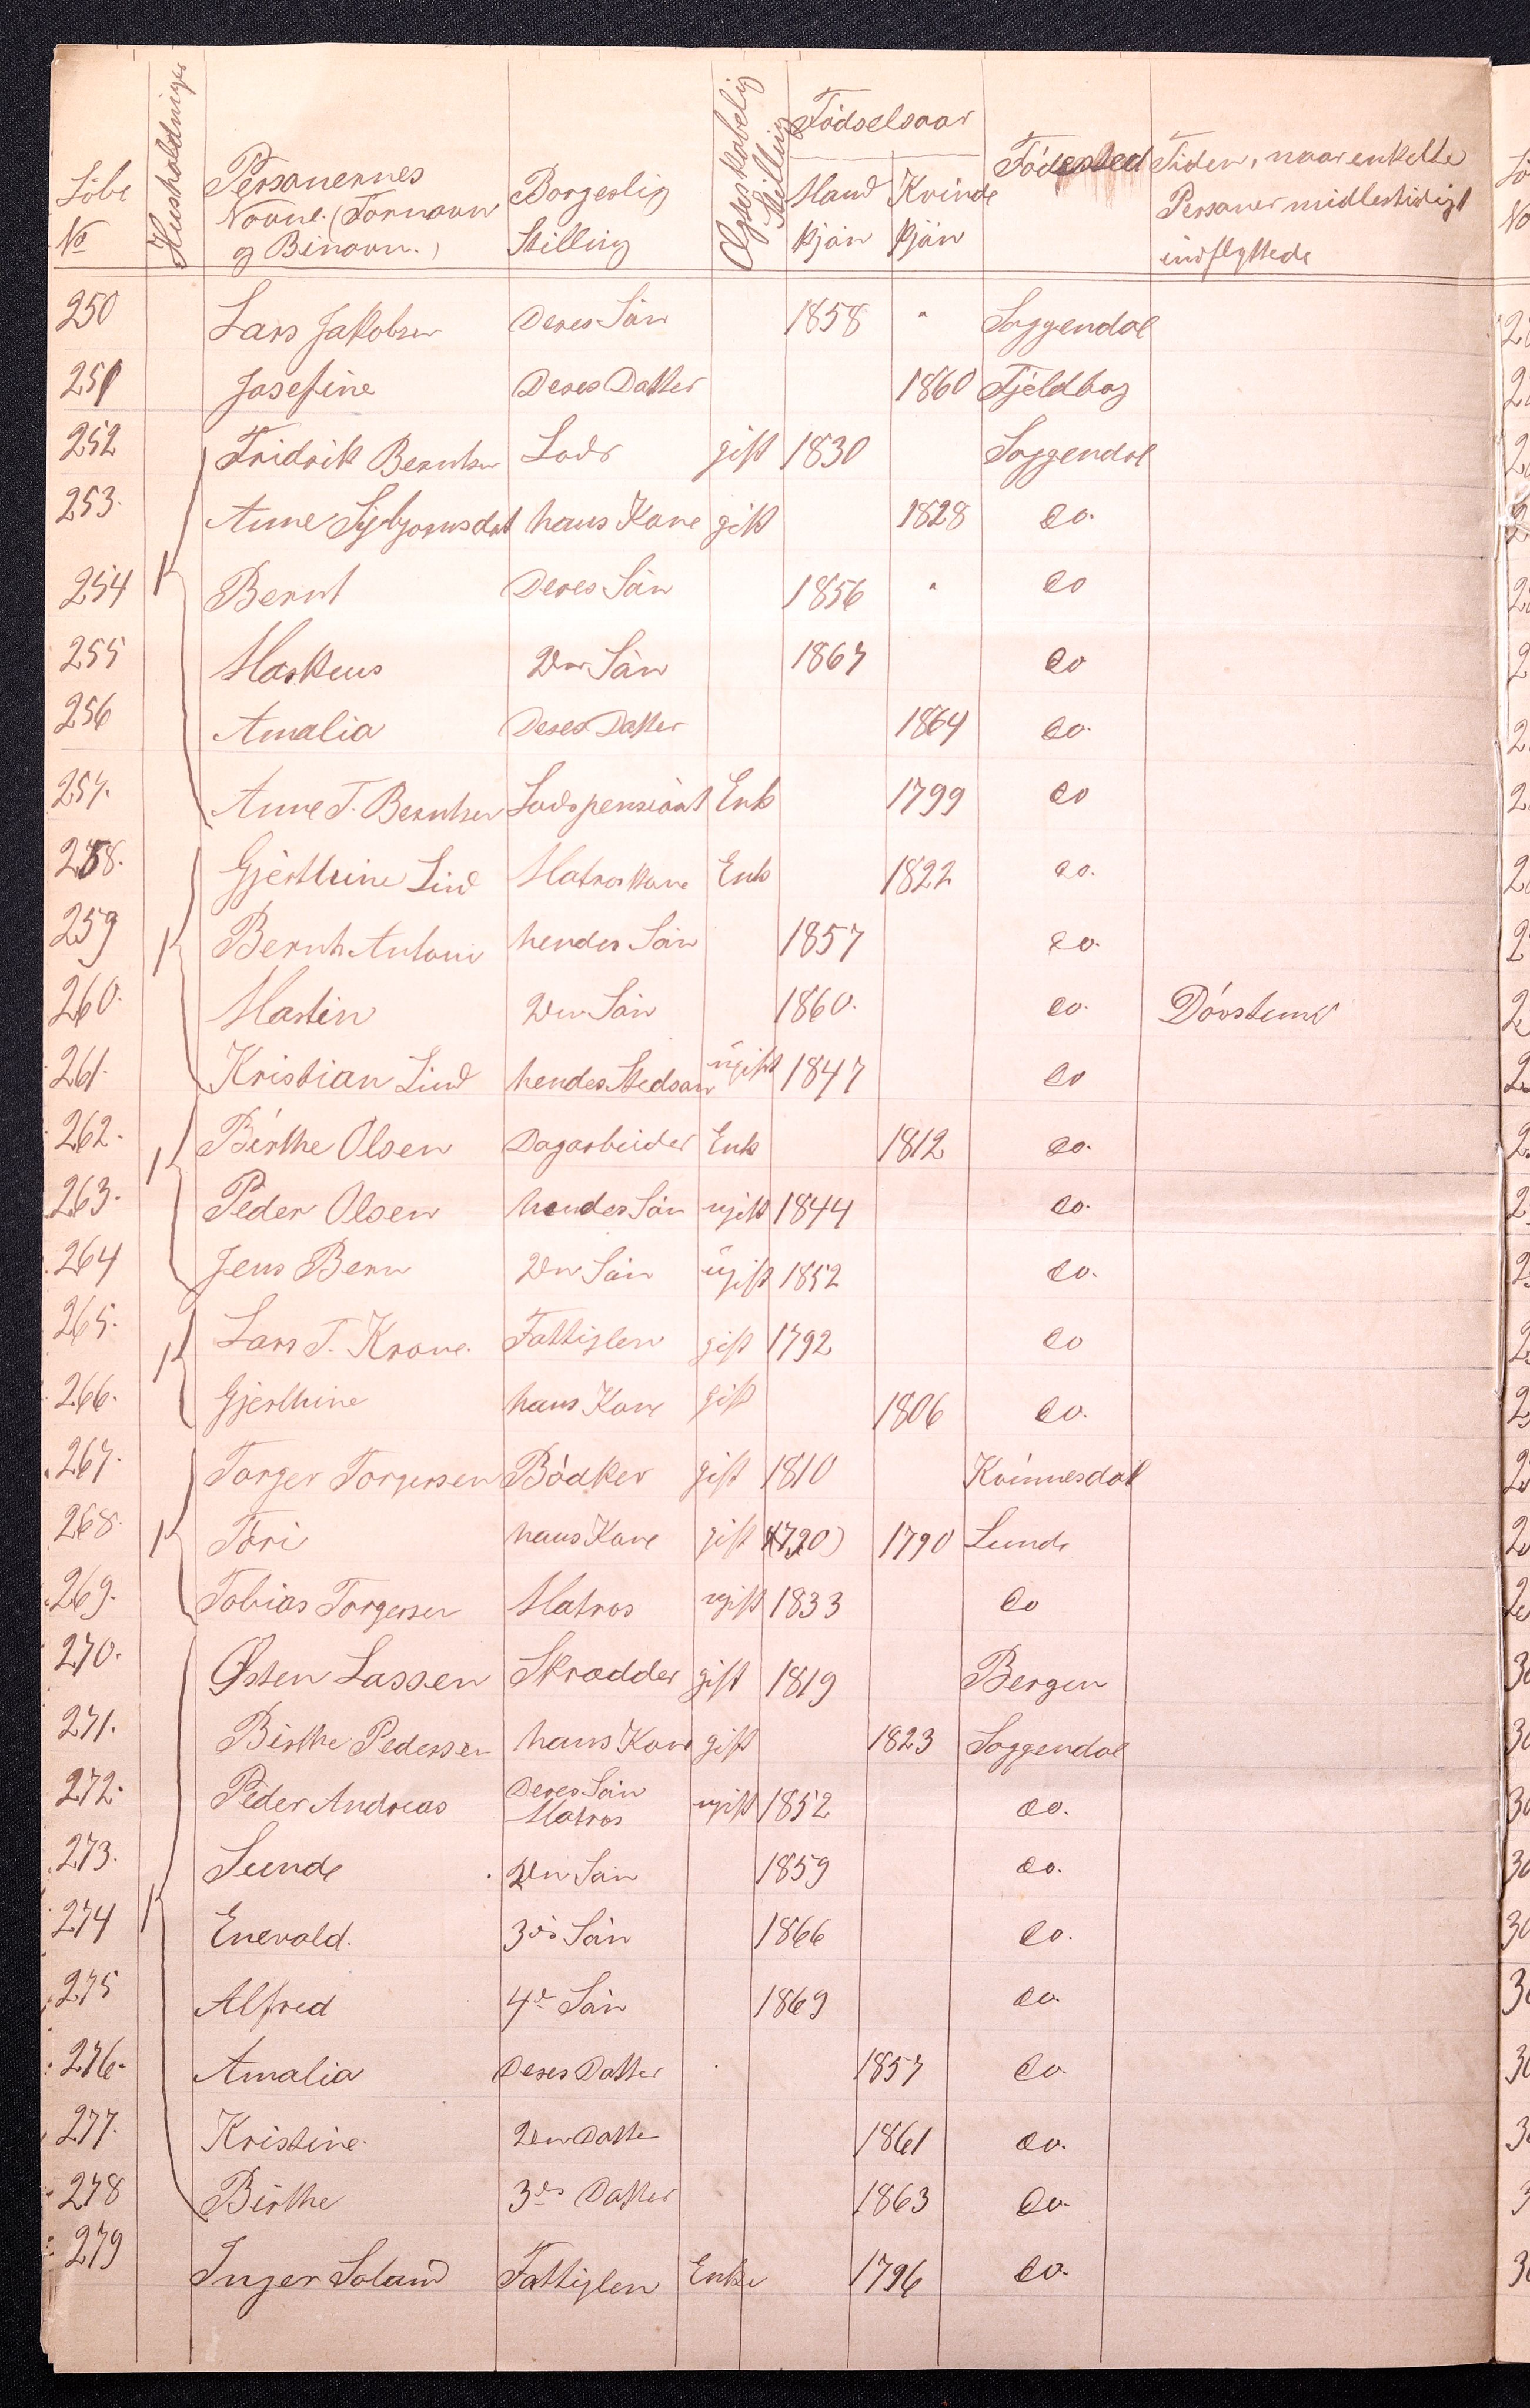 Löbe No Husholdninger Personernes Navne. (Fornavn og Binavn.) Borgerlig Stilling Ægteskabelig Stilling Födselsaar Mand kjön Kvinde kjön Födested Tiden, naar enkelte Personer midlertidigt indflyttede
250 Lars Jakobsen Deres Sön 1858 " Soggendal
251 Josefine Deres Datter 1860 Fjeldbog
252 Fridrik Berntsen Lods gift 1830 Soggendal
253. Anne Sigbjornsdat hans Kone gift 1828 do.
254 1 Bernt Deres Sön 1856 " do
255 Markus 2den Sön 1867 do
256 Amalia Deres Datter 1864 do.
257. Anne T. Berntsen Lodspensiönt Enk 1799 do
258. Gjerthrine Lind Matroskone Enk 1822 do.
259 1 Bernt Antoni hendes Sön 1857 do.
260. Martin 2den Sön 1860. do. Dövstum
261. Kristian Lind hendes Stedsön ugift 1847 do
262. 1 Birthe Olsen Dagarbeider Enk 1812 do.
263. Peder Olsen hendes Sön ugift 1844 do.
264 Jens Bern 2den Sön ugift 1852 do.
265. 1 Lars T. Krone. Fattiglem gift 1792 do
266. Gjerthrine hans Kone gift 1806 do.
267. Torger Torgersen Bödker gift 1810 Kvinnesdal
268. 1 Tori hans Kone gift (1790) 1790 Lunde
269. Tobias Torgersen Matros ugift 1833 do
270. Østen Lassen Skrædder gift 1819 Bergen
271. Birthe Pedersen hans Kone gift 1823 Soggendal
272. Peder Andreas Deres Sön Matros ugift 1852 do.
273. Lunde 2den Sön 1859 do.
274 1 Enevald. 3die Sön 1866 do.
275 Alfred 4de Sön 1869 do.
276. Amalia Deres Datter 1857 do.
277. Kristine. 2den Datter 1861 do.
278 Birthe 3die Datter 1863 do.
279 Inger Soland Fattiglem Enke 1796 do.